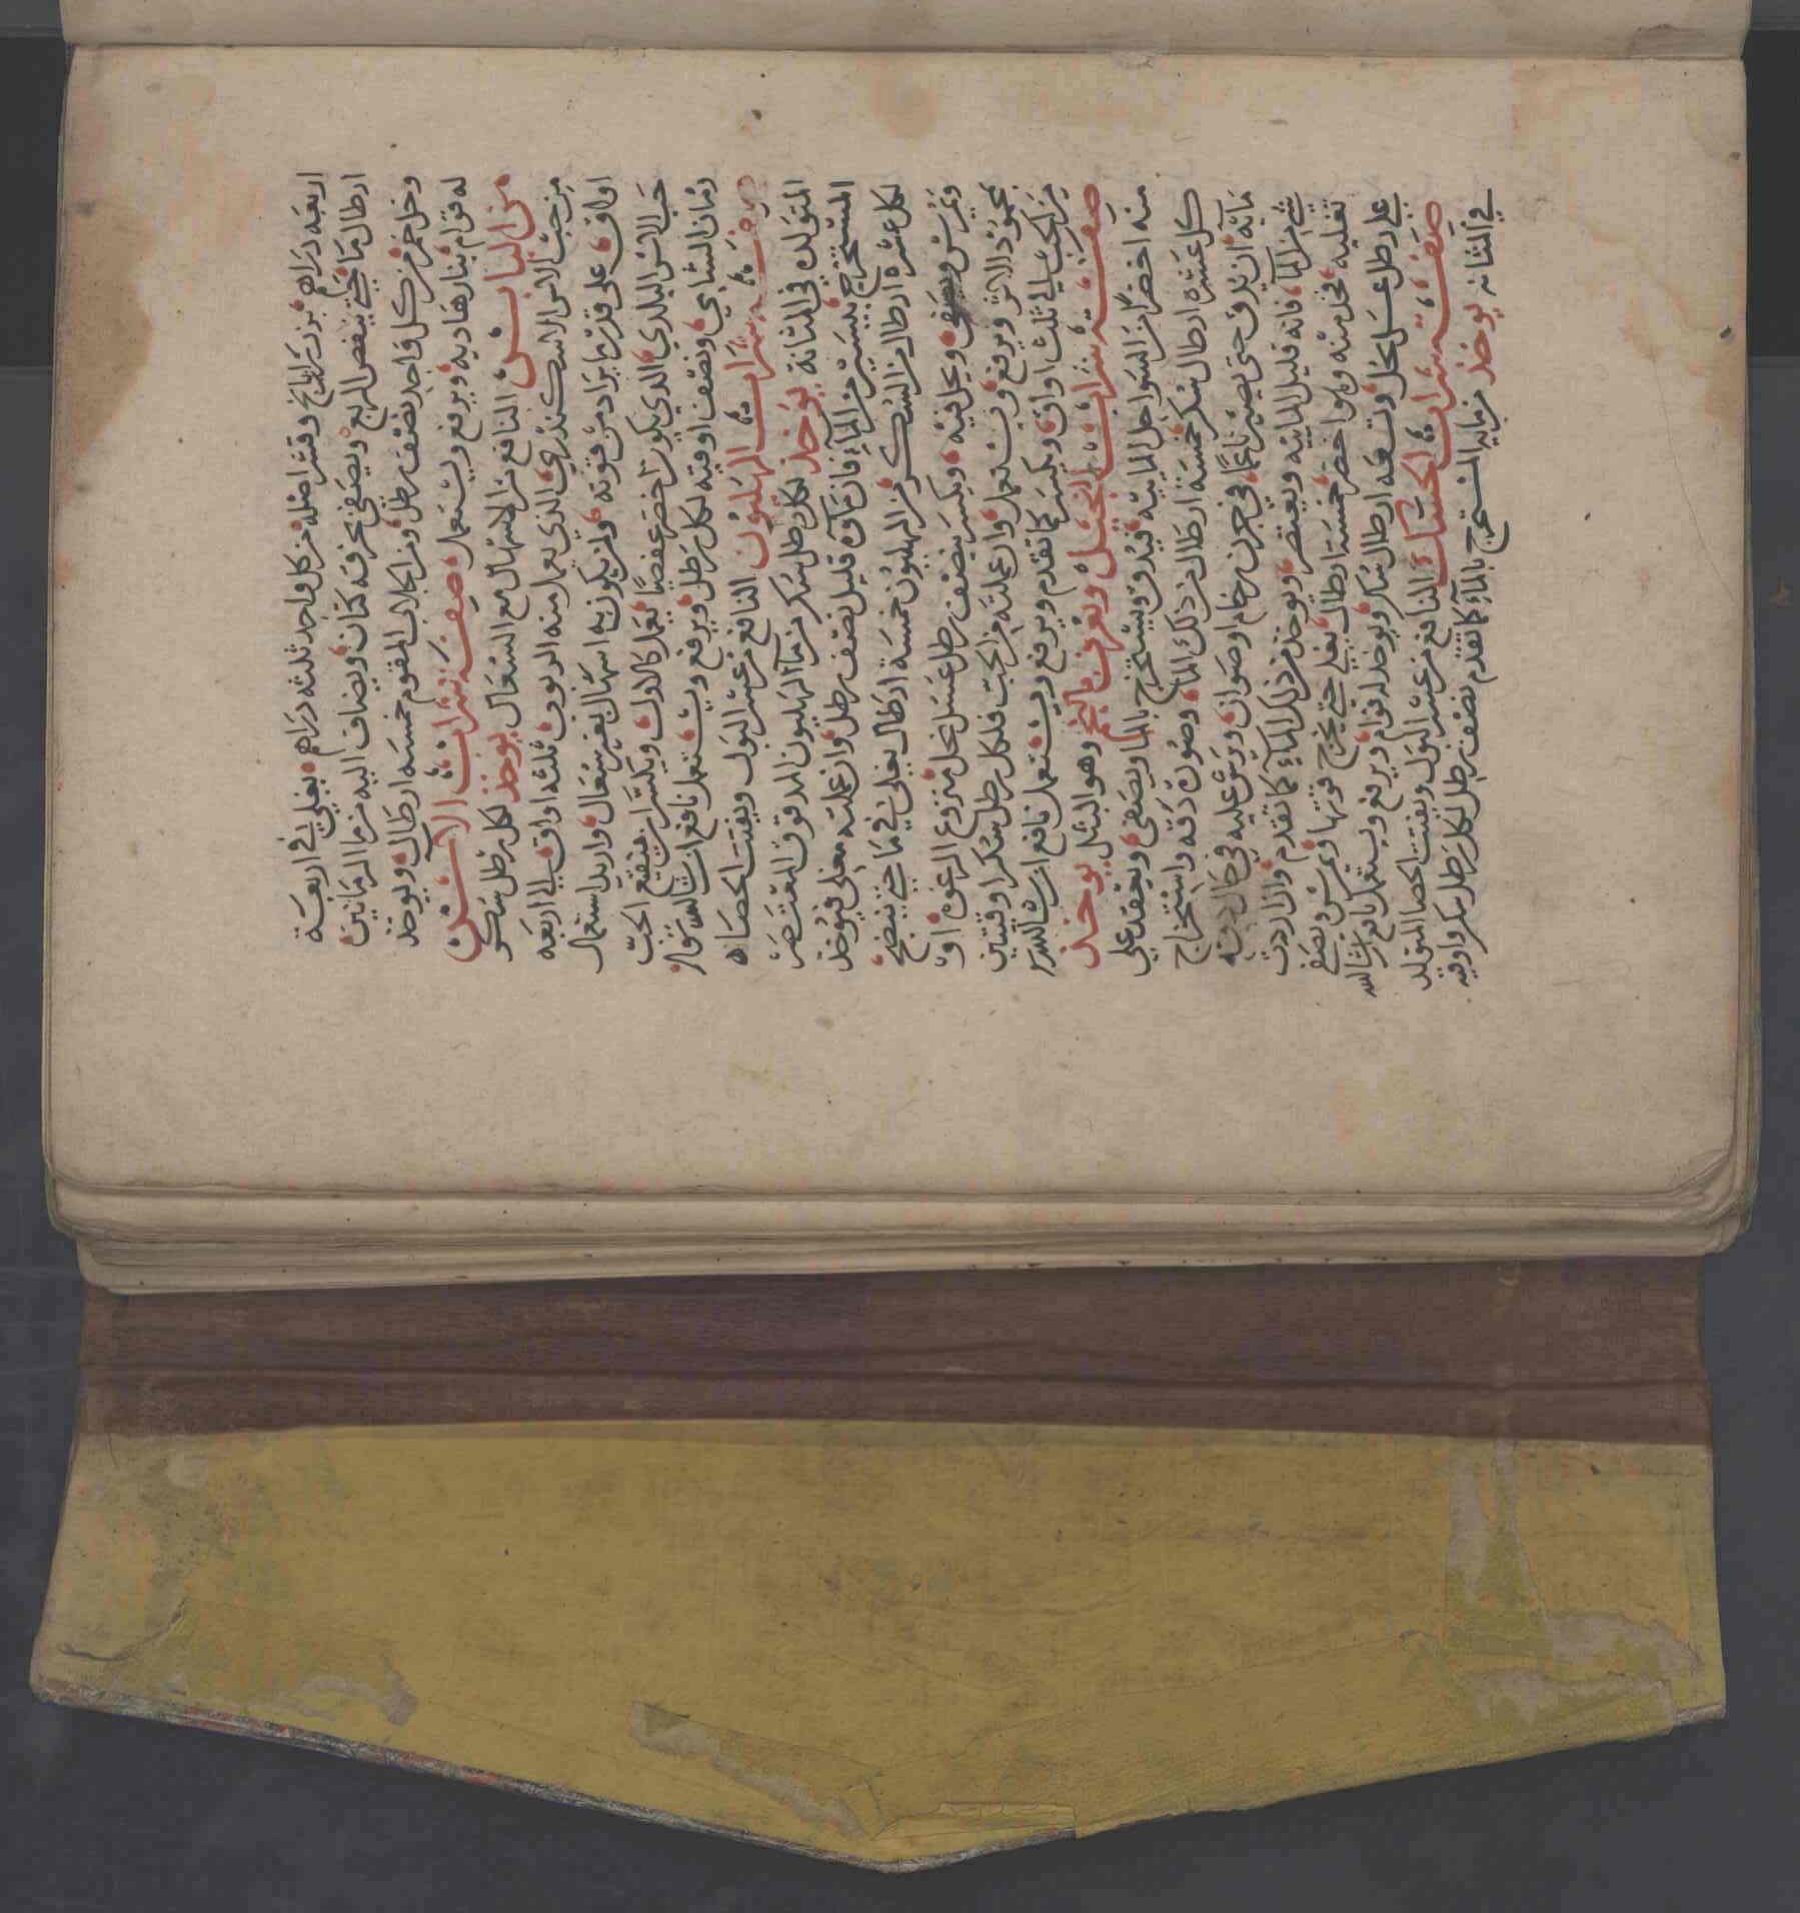 اربعه دراهم بزر رازيانج وقشر اصله من كل واحد ثلثه دراهم يغلي في اربعة
ارطال ما حتى ينقص الربع ويصفى بخرقة كتان ويضاف اليه من ما الرمانين
وخل خمر من كل واحد نصف رطل ومن الجلاب المقوم خمسه ارطال ويوخذ
له قوام بنار هاديه ويرفع ويستعمل صفة شراب الاس
من النافع من الاسهال مع السعال يوخذ لكل رطل سكر
من حب الاس الاسكندري الذي يعمل منه الربوب ثلثه اواق الى اربعه
اواق على قدر ما يراد من قوته ولمن يكون به اسهال بغير سعال واريد استعمال
حب الاس البلدي الذي يكون اخضر عفصيا يعمل كالاول ويكسر ان ينقع الحب
رمان الشامي ونصف اوقيه لكل رطل ويرفع ويستعمل نافع ان شا الله تعالى
صفة شراب الهليون النافع من عسر البول ويفتت الحصاه
المتولده في المثانة يوخذ لكل رطل سكر من ما الهليون المدقوق المعتصر
المستخرج بيسير من الماء فان ماوه قليل نصف رطل وان عملته مغلى فيوخذ
لكل عشره ارطال من السكر من الهليون خمسة ارطال يغلي في ما حتى ينضج
ويمرس ويصفى ويحل فيه ويكسر بنصف رطل عسل نحل منزوع الرغوه او
بعمود الاس ويرفع ويستعمل وان عملته من الحب فلكل رطل سكر اوقيتين
من الحب الى ثلث اواق ويكسر كما تقدم ويرفع ويستعمل نافع ان شا الله
صفة شراب النجيل ويعرف بالنجم وهو الثيل يوخذ
منه اخضر من السواحل المايية فيدق ويستخرج بالما ويصفى ويعقد على
كل عشره ارطال سكر خمسة ارطال من ذلك الما وصورة دقه واستخراج
مايه ان يدق حتى يصير ناعما في جرن رخام او صوان ويرش عليه في حال دقه
شي من الماء فانه قليل المايية ويعتصر ويوخذ من ذلك الماء كما تقدم وان اردت
تغليه فخذ منه وهو اخضر خمسة ارطال يغلي حتى تخرج قوتها ويمرس ويصفى
على رطل عسل نحل وتسعه ارطال سكر ويوخذ له قوام ويرفع ويستعمل نافع ان شا الله
صفة شراب الحسك النافع من عسر البول ويفتت الحصا المتولد
في المثانه يوخذ من مايه المستخرج بالماء كما تقدم نصف رطل لكل رطل سكر واوقيه